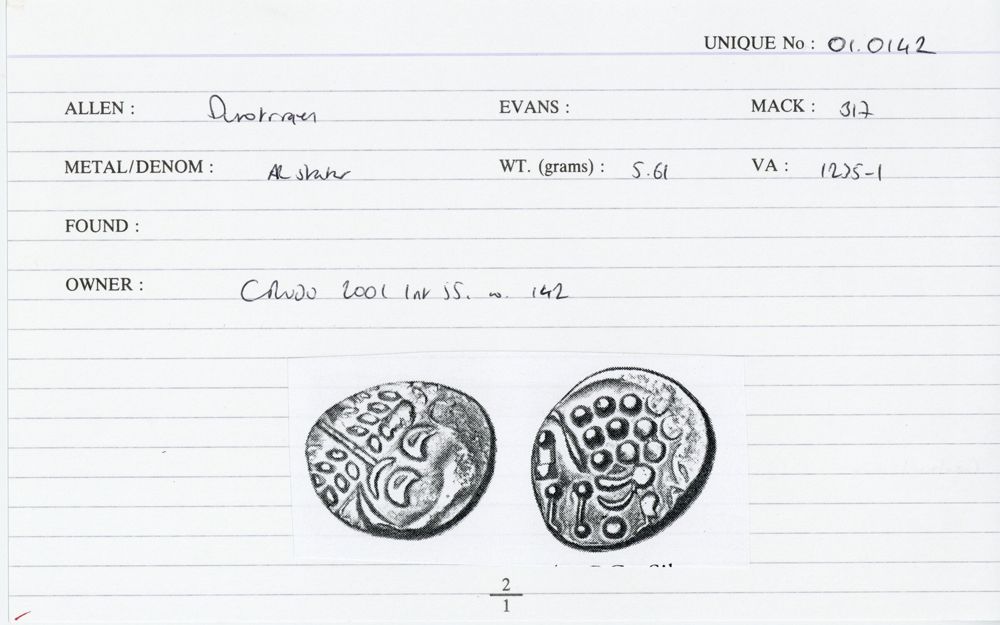 UNIQUE No : 01.0142
ALLEN : Durotrigan EVANS : MACK : 317
METAL/DENOM : AR stater WT. (grams) : 5.61 VA : 1235-1
FOUND :
OWNER : 2001 142
2
1